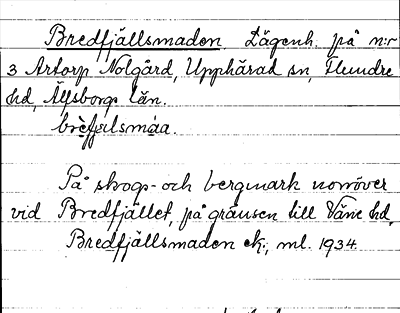 Bredfjällsmaden. Lägenh. på n:r
3 Artorp Nolgård, Upphärad sn, Flundre
hd, Älfsborgs län.
brèfjälsmáa.
På skogs- och bergmark norröver
vid Bredfjället, på gränsen till Väne hd,
Bredfjällsmaden ek., ml. 1934